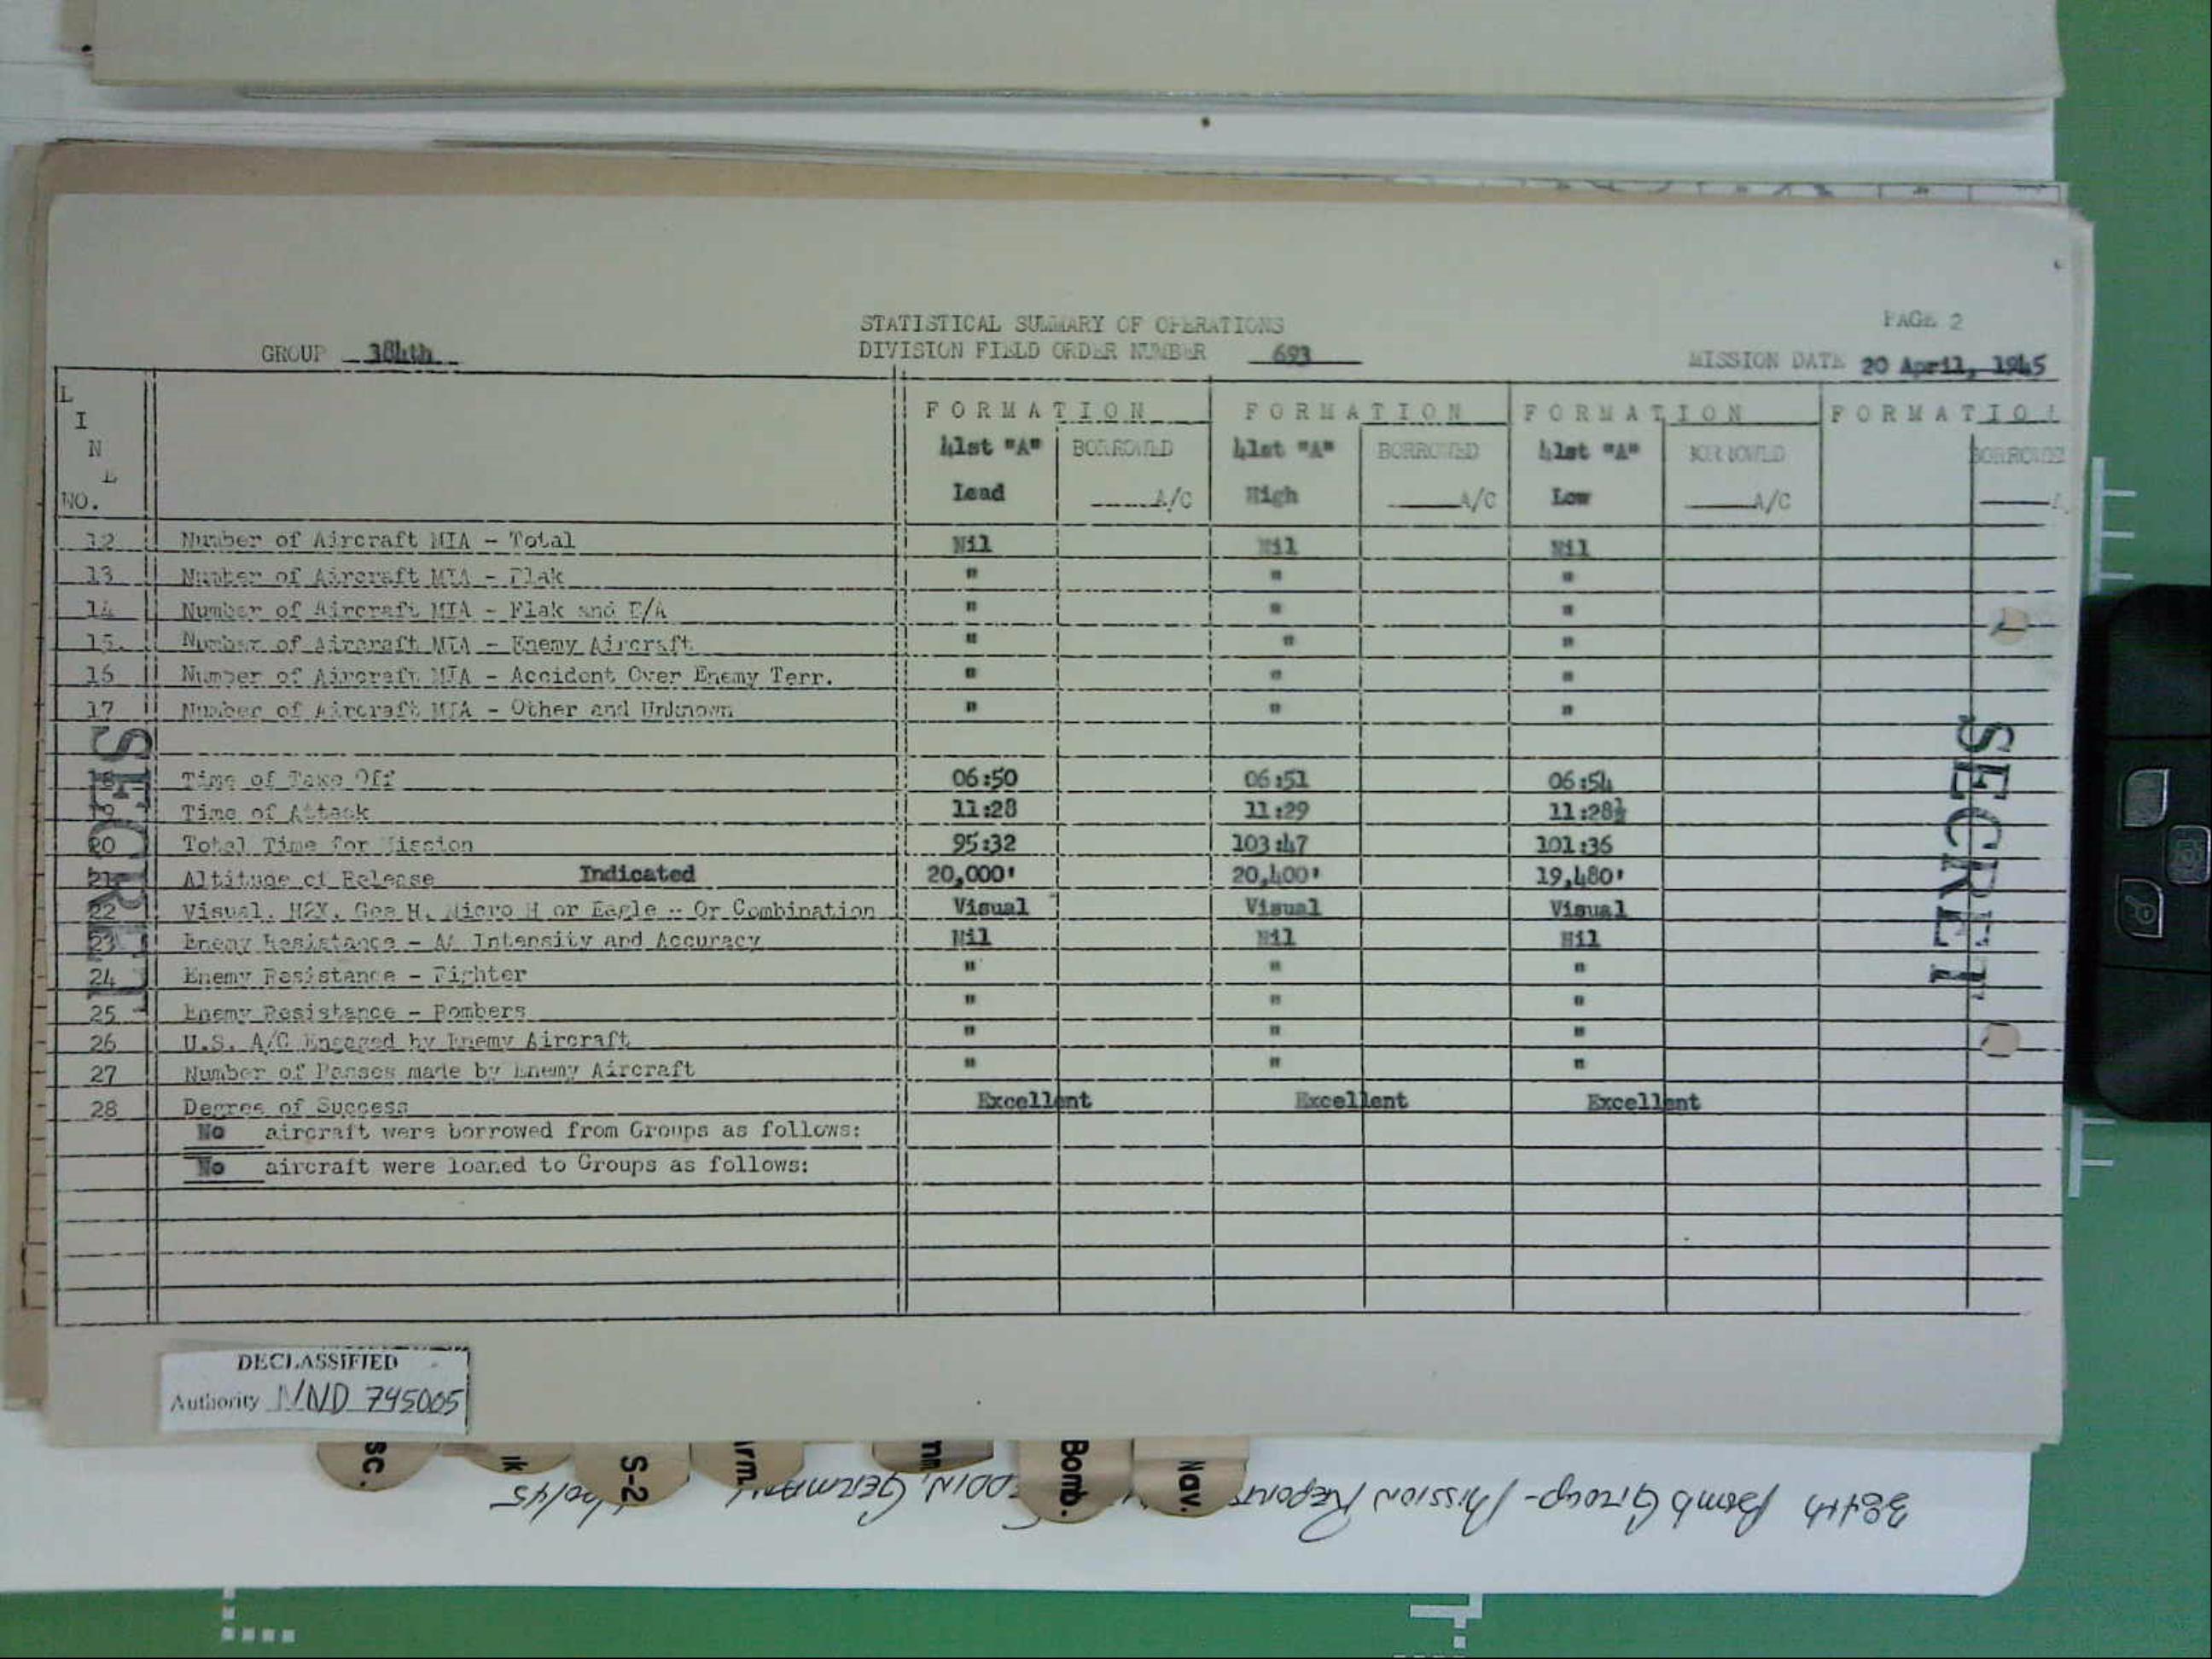 STATISTICAL SUMMARY OF OPERATIONS
PAGE 2
GROUP 384th
DIVISION FIELD ORDER NUMBER 693
MISSION DATE 20 April, 1945
LINE NO.
FORMATION FORMATION FORMATION FORMATION
41st "A" BORROWED 41st "A" BORROWED 41st "A" BORROWED BORROWED
Lead A/C High A/C Low A/C
12 Number of Aircraft MIA - Total Nil Nil Nil
13 Number of Aircraft MIA - Flak " " "
14 Number of Aircraft MIA - Flak and E/A " " "
15. Number of Aircraft MIA - Enemy Aircraft " " "
16 Number of Aircraft MIA - Accident Over Enemy Terr. " " "
17 Number of Aircraft MIA - Other and Unknown " " "
18 Time of Take Off 06:50 06:51 06:54
19 Time of Attack 11:28 11:29 11:28½
20 Total Time for Mission 95:32 103:47 101:36
21 Altitude of Release Indicated 20,000' 20,400' 19,480'
22 Visual, H2X, Gee H, Micro H or Eagle - Or Combination Visual Visual Visual
23 Enemy Resistance - AA Intensity and Accuracy Nil Nil Nil
24 Enemy Resistance - Fighter " " "
25 Enemy Resistance - Bombers " " "
26 U.S. A/C Engaged by Enemy Aircraft " " "
27 Number of Passes made by Enemy Aircraft " " "
28 Degree of Success Excellent Excellent Excellent
No aircraft were borrowed from Groups as follows:
No aircraft were loaned to Groups as follows:
SECRET
SECRET
DECLASSIFIED
Authority NND 745005
S-2
Bomb.
Nav.
384th Bomb Group - Mission Report
GERMANY